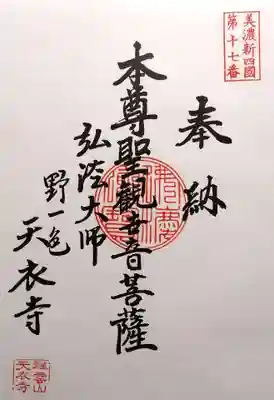 美濃新四國
第十七番
奉納
本尊聖觀世音菩薩
弘法大師
野一色
天衣寺
天衣寺